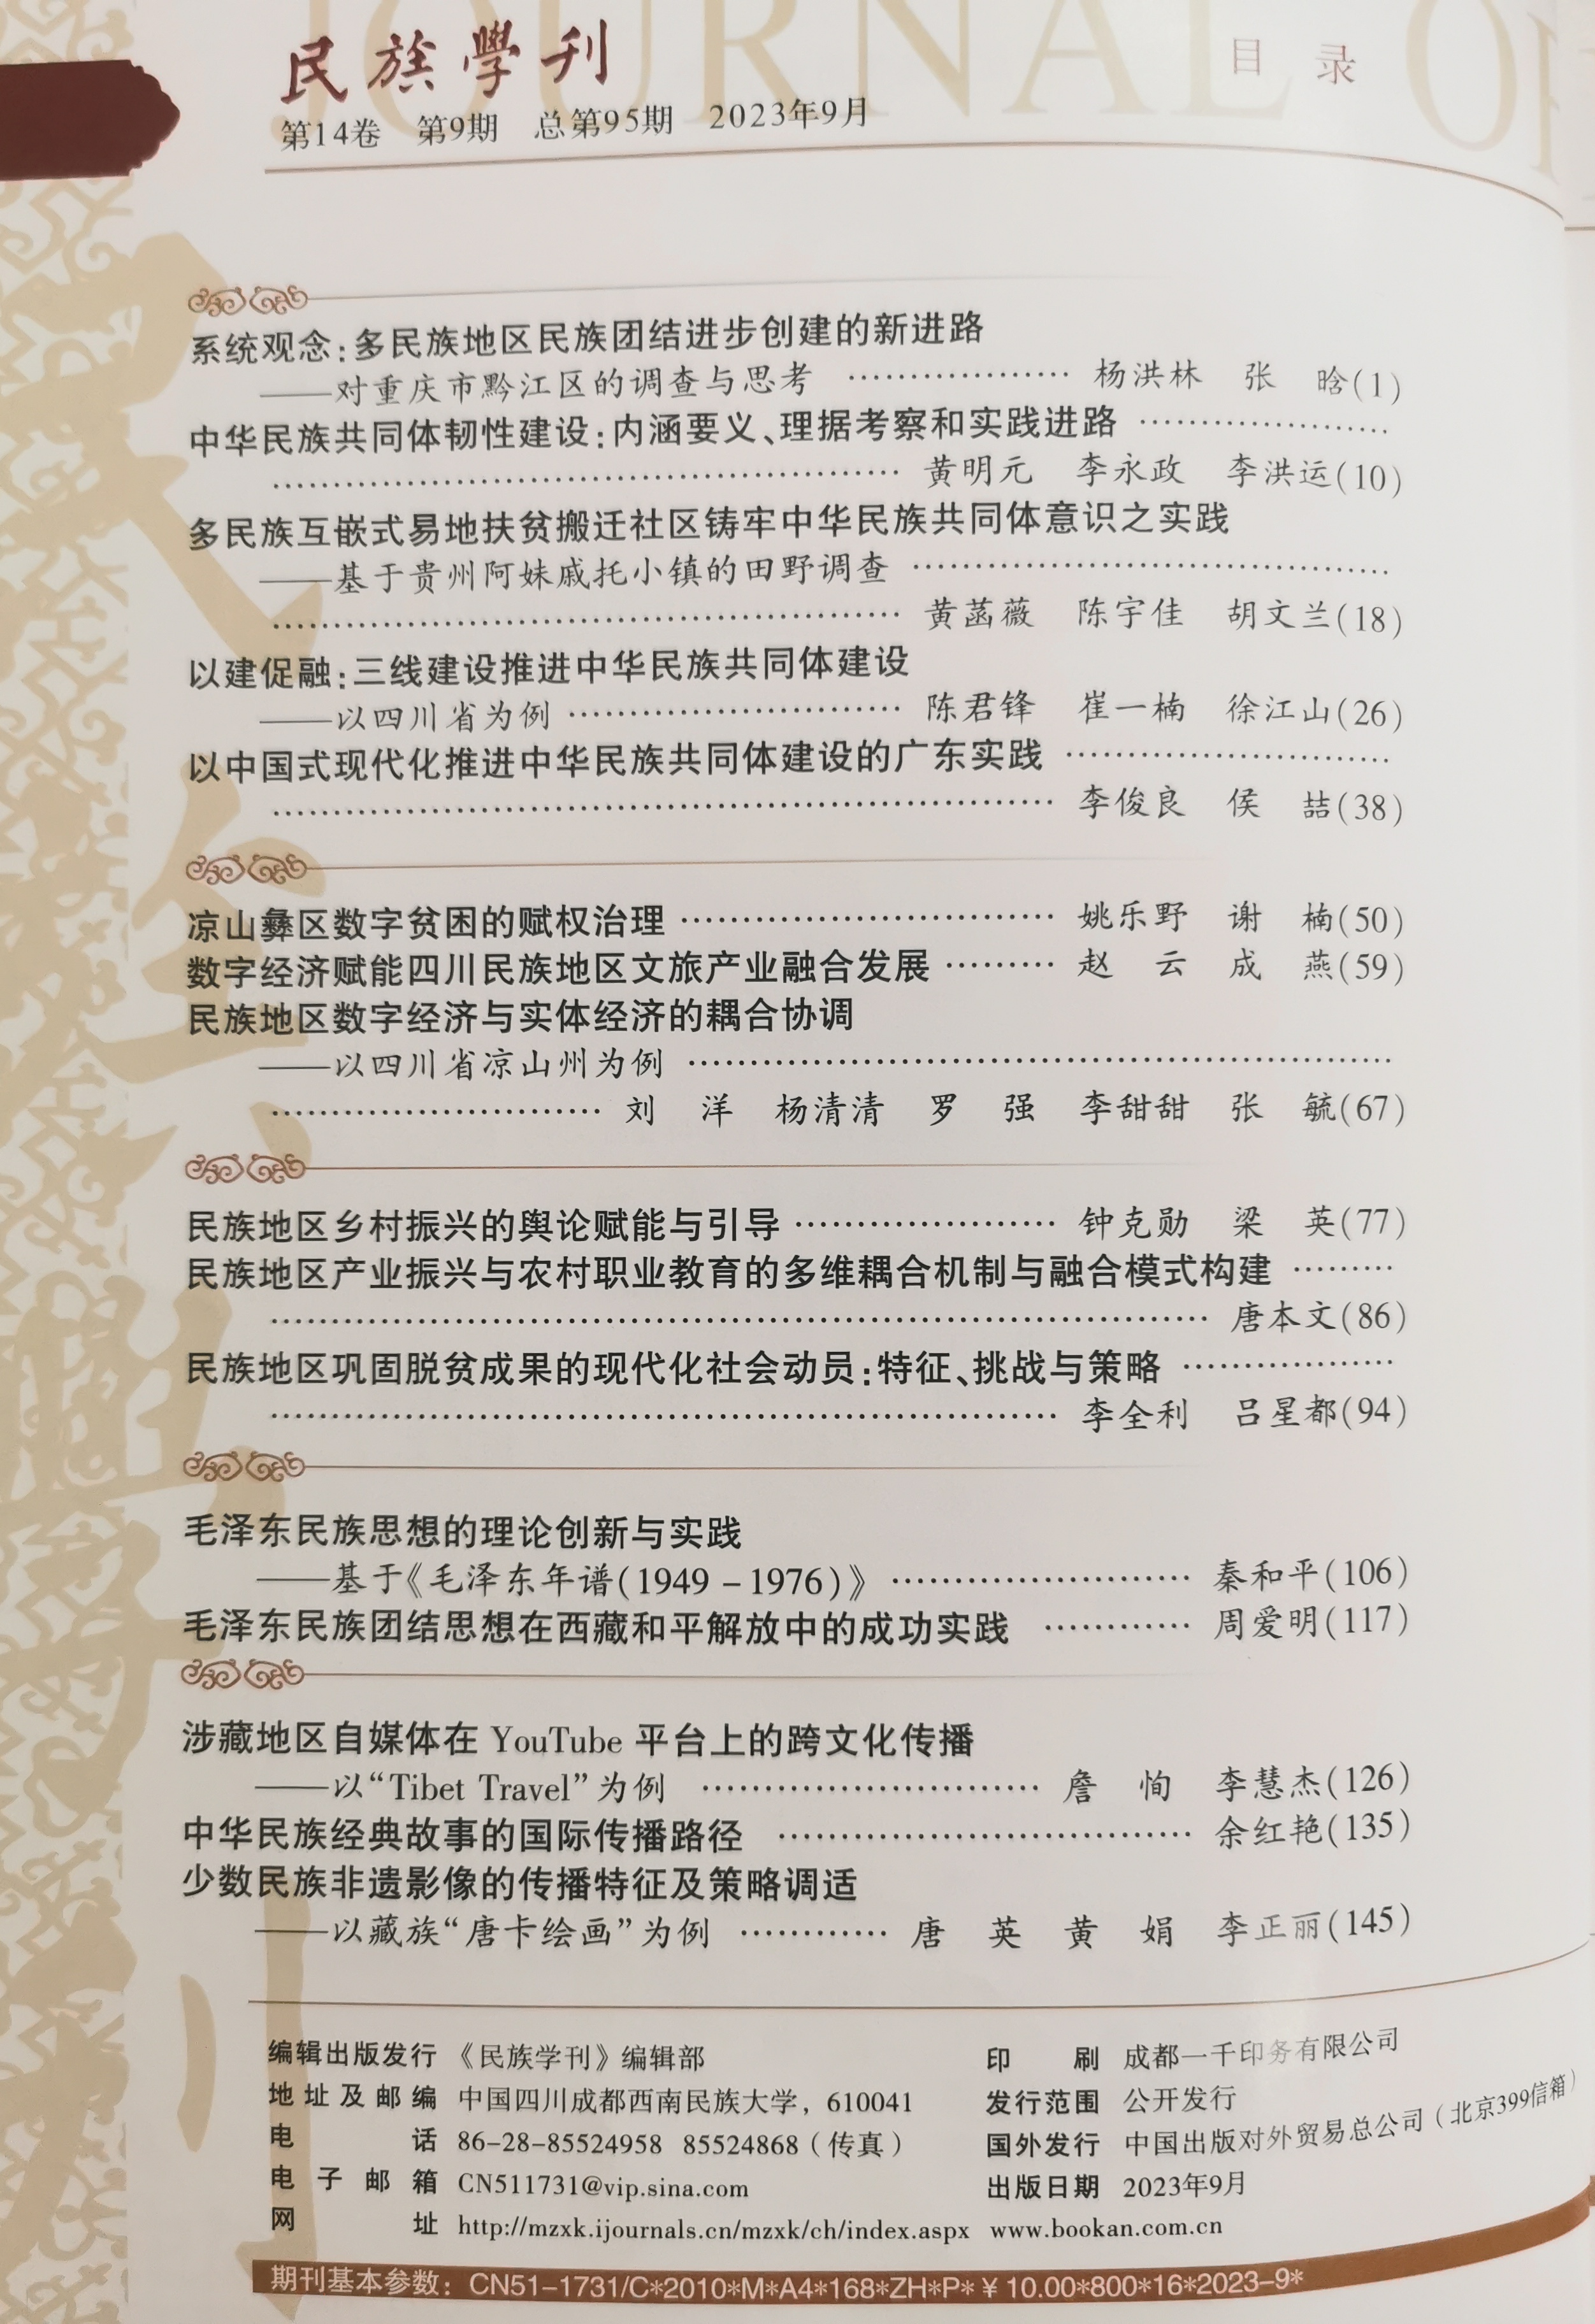 JOURNAL OF
民族學刊
目 录
第14卷 第9期 总第95期 2023年9月
系统观念：多民族地区民族团结进步创建的新进路
——对重庆市黔江区的调查与思考 ……………… 杨洪林 张 晗(1)
中华民族共同体韧性建设：内涵要义、理据考察和实践进路 …………………
………………………………………………… 黄明元 李永政 李洪运(10)
多民族互嵌式易地扶贫搬迁社区铸牢中华民族共同体意识之实践
——基于贵州阿妹戚托小镇的田野调查 ……………………………………
………………………………………………… 黄菡薇 陈宇佳 胡文兰(18)
以建促融：三线建设推进中华民族共同体建设
——以四川省为例 ………………………… 陈君锋 崔一楠 徐江山(26)
以中国式现代化推进中华民族共同体建设的广东实践 ………………………
……………………………………………………………… 李俊良 侯 喆(38)
凉山彝区数字贫困的赋权治理 ……………………………… 姚乐野 谢 楠(50)
数字经济赋能四川民族地区文旅产业融合发展 ……… 赵 云 成 燕(59)
民族地区数字经济与实体经济的耦合协调
——以四川省凉山州为例 ………………………………………………………
………………………… 刘 洋 杨清清 罗 强 李甜甜 张 毓(67)
民族地区乡村振兴的舆论赋能与引导 …………………… 钟克勋 梁 英(77)
民族地区产业振兴与农村职业教育的多维耦合机制与融合模式构建 ………
………………………………………………………………………… 唐本文(86)
民族地区巩固脱贫成果的现代化社会动员：特征、挑战与策略 ………………
……………………………………………………………… 李全利 吕星都(94)
毛泽东民族思想的理论创新与实践
——基于《毛泽东年谱(1949－1976)》 ……………………… 秦和平(106)
毛泽东民族团结思想在西藏和平解放中的成功实践 ………… 周爱明(117)
涉藏地区自媒体在 YouTube 平台上的跨文化传播
——以“Tibet Travel”为例 ………………………… 詹 恂 李慧杰(126)
中华民族经典故事的国际传播路径 ……………………………… 余红艳(135)
少数民族非遗影像的传播特征及策略调适
——以藏族“唐卡绘画”为例 ………… 唐 英 黄 娟 李正丽(145)
编辑出版发行 《民族学刊》编辑部 印 刷 成都一千印务有限公司
地址及邮编 中国四川成都西南民族大学，610041 发行范围 公开发行
电 话 86-28-85524958 85524868（传真） 国外发行 中国出版对外贸易总公司（北京399信箱）
电子邮箱 CN511731@vip.sina.com 出版日期 2023年9月
网 址 http://mzxk.ijournals.cn/mzxk/ch/index.aspx www.bookan.com.cn
期刊基本参数：CN51-1731/C*2010*M*A4*168*ZH*P*￥10.00*800*16*2023-9*